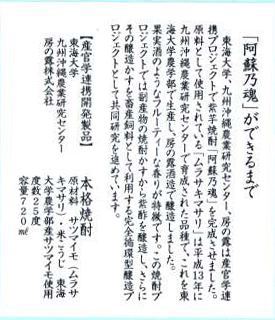 「阿蘇乃魂」ができるまで
東海大学、九州沖縄農業研究センター、房の露は産官学連
携プロジェクトで紫芋焼酎「阿蘇乃魂」を完成させました。
原料として使用されている「ムラサキマサリ」は平成13年に
九州沖縄農業研究センターで育成された品種で、これを東
海大学農学部で生産し、房の露酒造で醸造しました。
果実酒のようなフルーティーな香りが特徴です。この焼酎プ
ロジェクトでは副産物の焼酎かすから紫酢を醸造し、さらに
その醸造かすを畜産飼料として利用する完全循環型醸造プ
ロジェクトとして共同研究を進めています。
【産官学連携開発製品】
東海大学
九州沖縄農業研究センター
房の露株式会社
本格焼酎
原材料 サツマイモ(ムラサ
キマサリ)、米こうじ 東海
大学農学部産サツマイモ使用
度数25度
容量720㎖